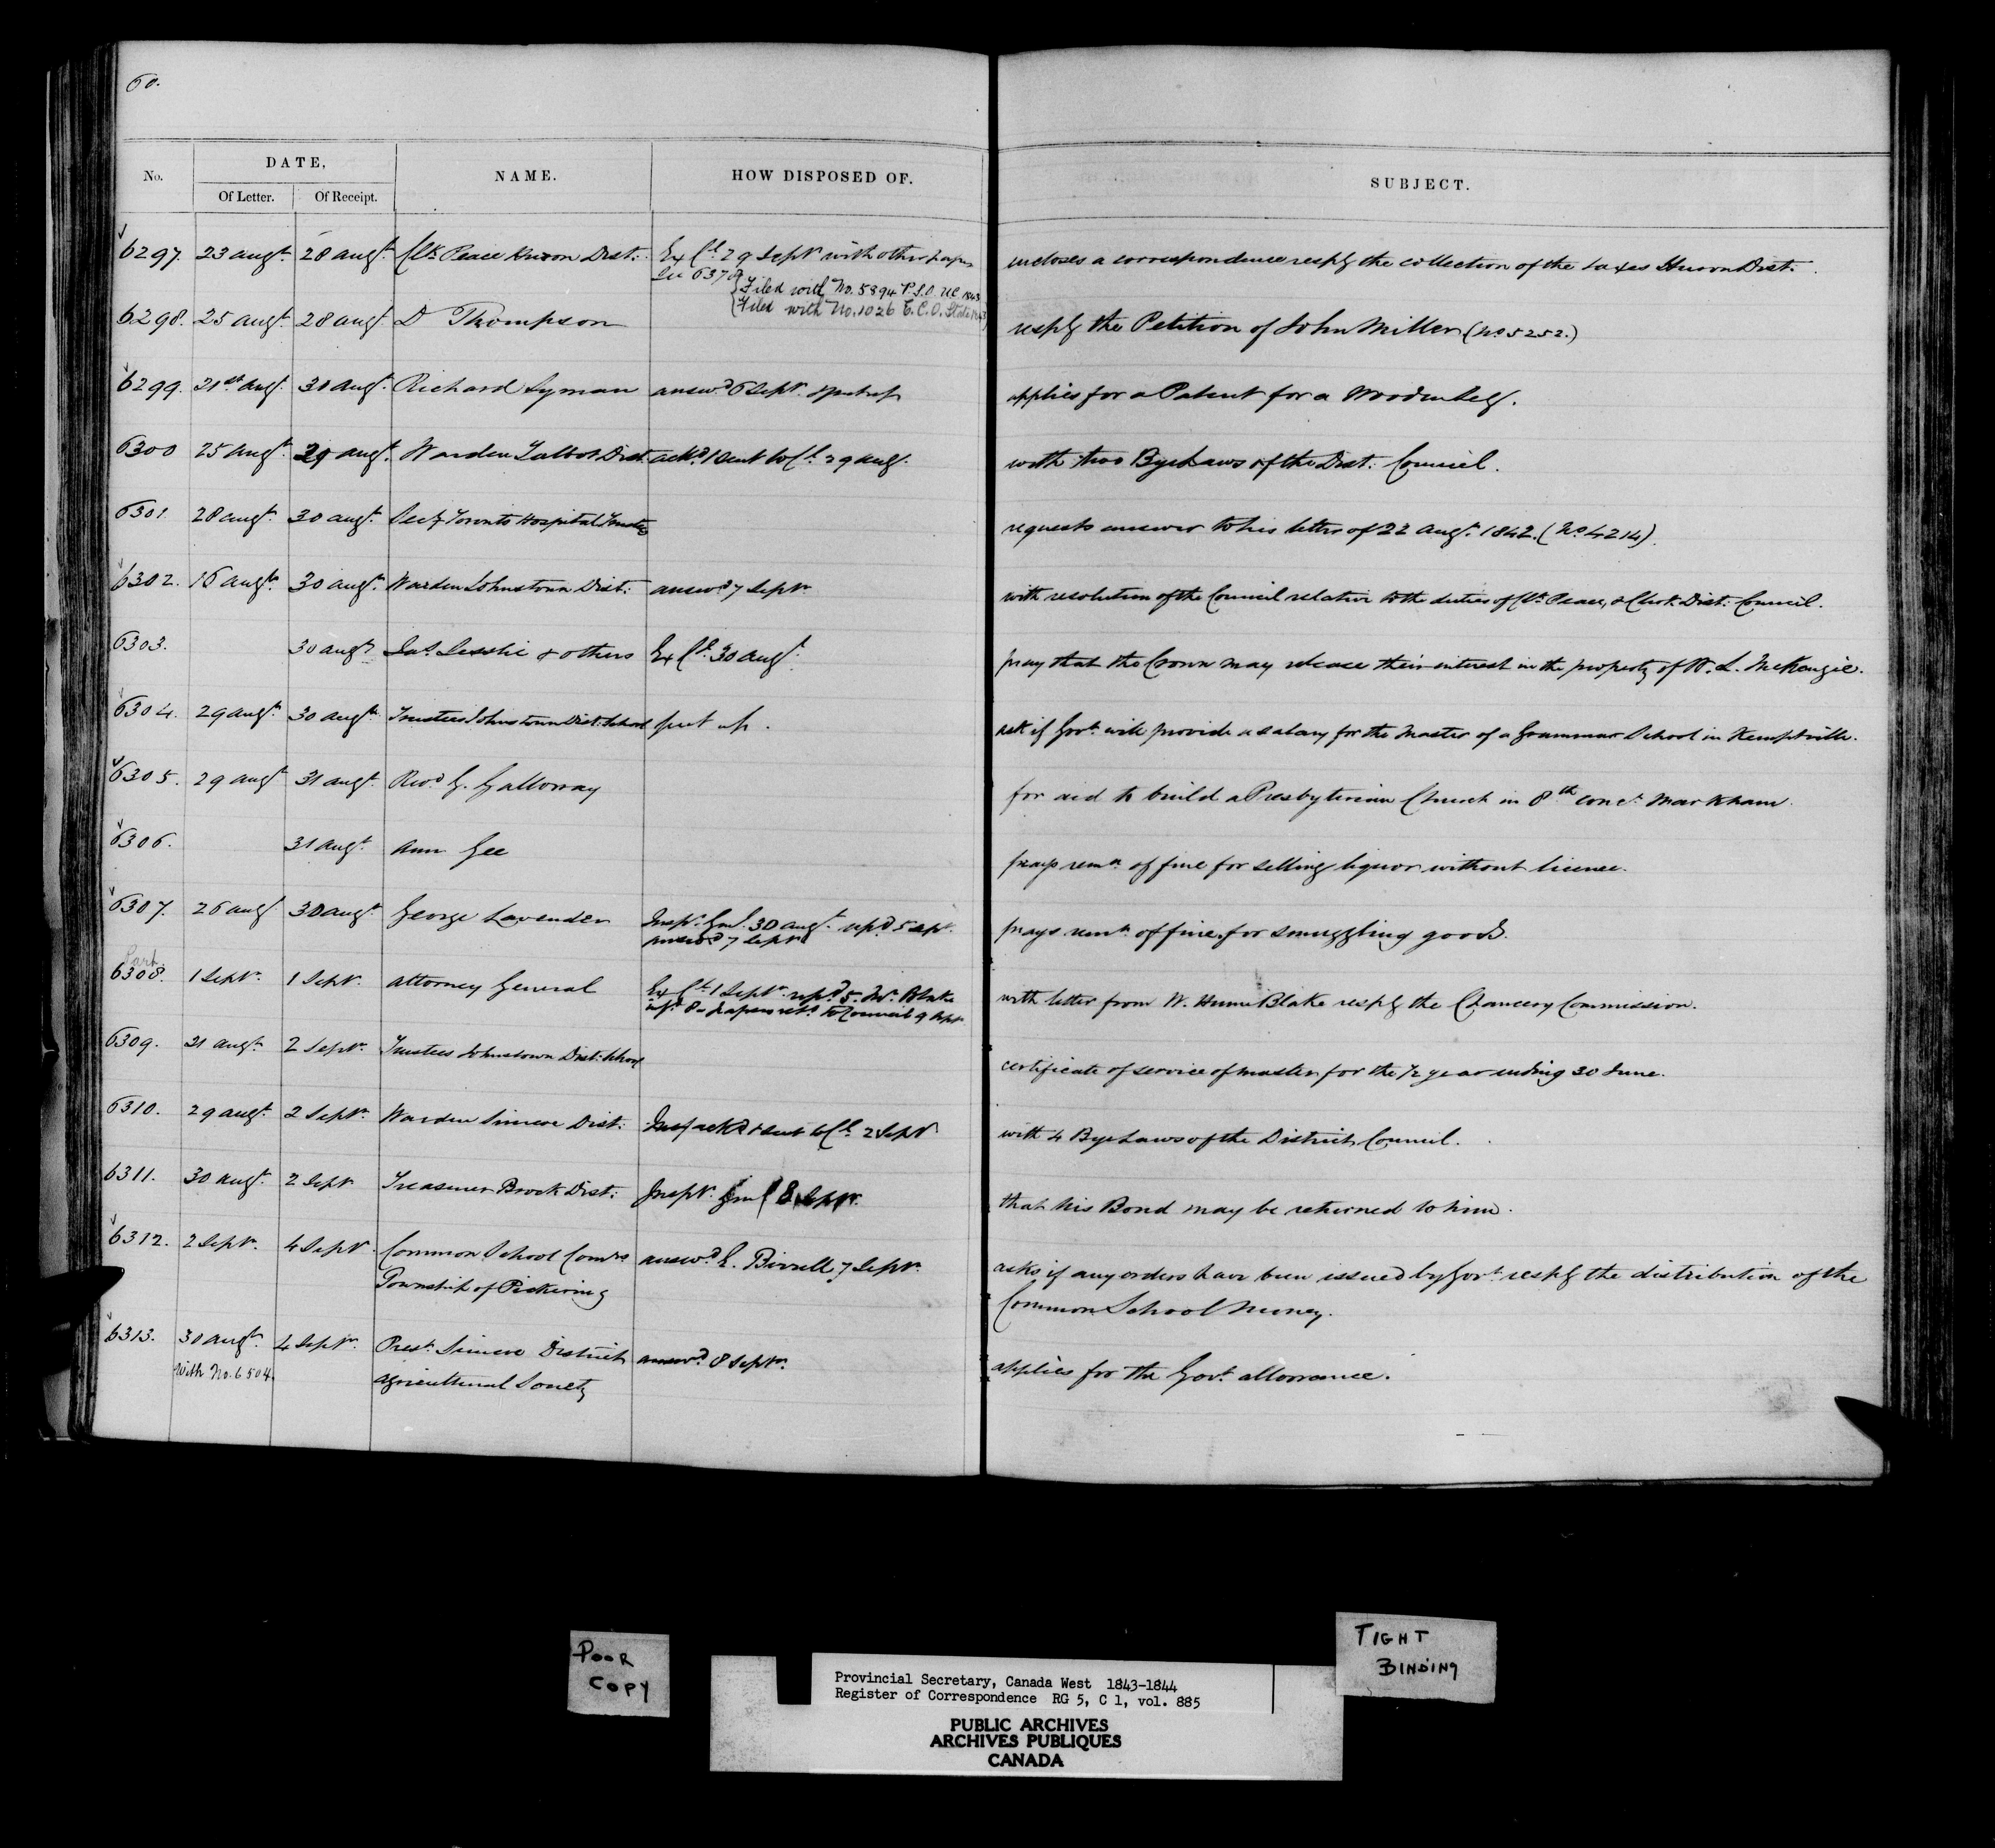 60.
No. DATE, NAME. HOW DISPOSED OF. SUBJECT.
Of Letter. Of Receipt.
6297. 23 augt. 28 augt. Clk Peace Huron Dist: Ex Cl. 29 Septr with other papers incloses a correspondence respg the collection of the taxes Huron Dist:
See 6370
Filed with No. 5894 P.S.O. UC 1843
Filed with No. 1026 State 1843
6298. 25 augt. 28 augt D Thompson respg the Petition of John Miller (No 5252.)
6299. 21st augt. 30 augt. Richard Lyman answd 6 Septr. & put up applies for a Patent for a Wooden leg.
6300 25 augt. 29 augt. Warden Talbot Dist. ackd & sent to Cl. 29 augt. with two Bye Laws of the Dist: Council.
6301 28 augt. 30 augt. Secy Toronto Hospital Trustees requests answer to his letter of 22 augt. 1842. (No 4214).
6302. 16 augt. 30 augt. Warden Johnstown Dist: answd 7 Septr with resolution of the Council relative to the duties of Clk Peace, & Clerk Dist: Council.
6303. 30 augt Jas. Lesslie & others Ex Cl. 30 augt. pray that the Crown may release their interest in the property of W. L. McKenzie.
6304. 29 augt. 30 augt. Trustees Johnstown Dist: School put up. ask if Govt. will provide a salary for the Master of a Grammar School in Kemptville.
6305. 29 augt 31 augt. Revd G. Galloway for aid to build a Presbyterian Church in 8th conc. Markham.
6306. 31 augt. Ann Gee prays remn. of fine for selling liquor without licence.
6307. 26 augt 30 augt. George Lavender Inspr. Genl. 30 augt. repd 5 Sepr. prays remn. of fine for smuggling goods.
answd 7 Septr
Part
6308. 1 Septr. 1 Septr. Attorney General Ex Cl. 1 Septr. repd 5. Mr. Blake with letter from W. Hume Blake respg the Chancery Commission.
infd 8 - papers retd to Council 9 Sepr
6309. 21 augt. 2 Septr. Trustees Johnstown Dist: School certificate of service of master for the 1/2 year ending 30 June.
6310. 29 augt. 2 Septr. Warden Simcoe Dist: ackd & sent to Cl. 2 Septr with 4 Bye Laws of the District Council.
6311. 30 augt. 2 Septr Treasurer Brock Dist: Inspr. Genl 8 Septr. that his Bond may be returned to him.
6312. 2 Septr. 4 Septr. Common School Comrs answd E. Birrell 7 Septr. asks if any orders have been issued by Govt. respg the distribution of the
Township of Pickering Common School Money.
6313. 30 augt. 4 Septr. Prest. Simcoe District answd. 8 Septr. applies for the Govt. allowance.
With No. 6504. Agricultural Society
POOR
COPY
TIGHT
BINDING
Provincial Secretary, Canada West 1843-1844
Register of Correspondence RG 5, C 1, vol. 885
PUBLIC ARCHIVES
ARCHIVES PUBLIQUES
CANADA